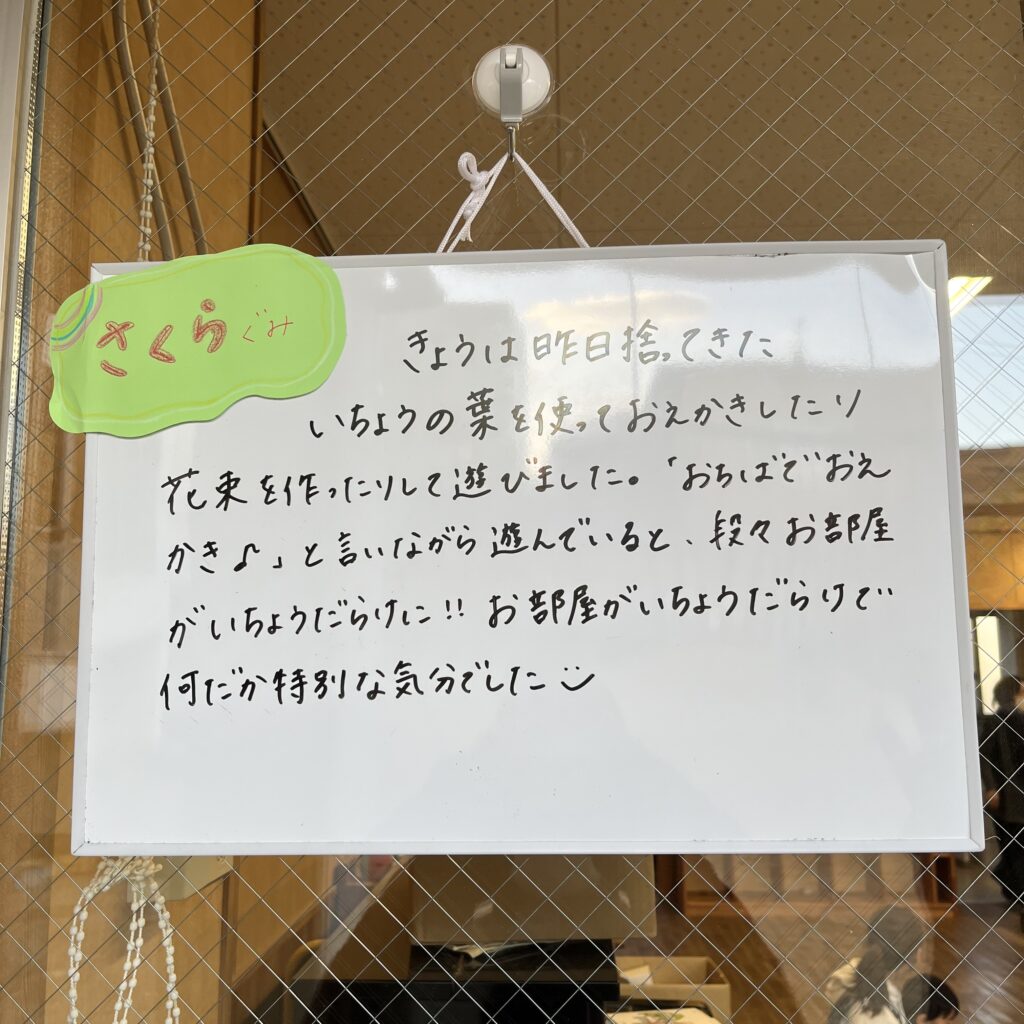 さくらぐみ
きょうは昨日捨ってきた
いちょうの葉を使っておえかきしたり
花束を作ったりして遊びました。「おちばで おえ
かき♪」と言いながら遊んでいると、段々お部屋
がいちょうだらけに!! お部屋がいちょうだらけで
何だか特別な気分でした